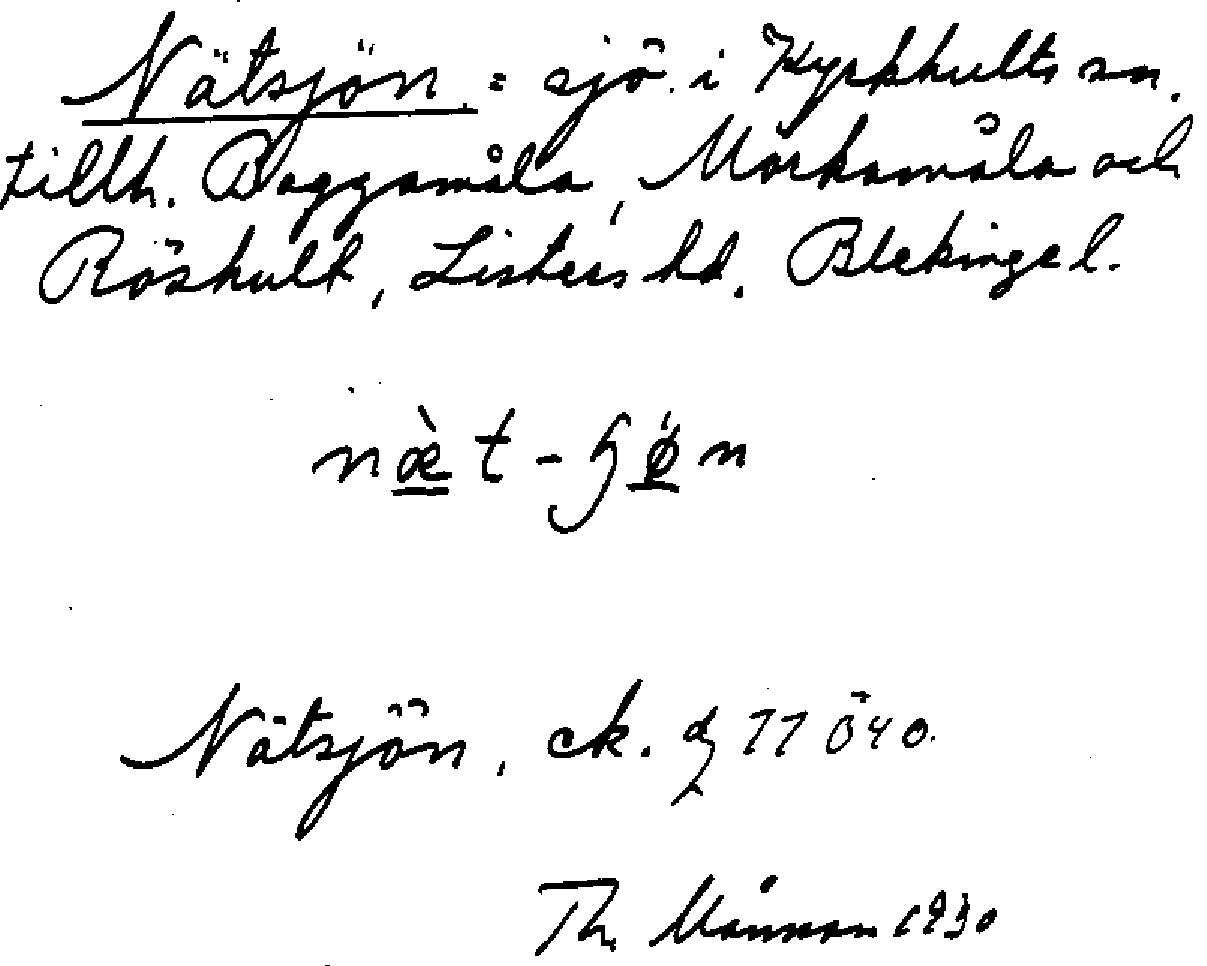 Nätsjön = sjö i Kyrkhults sn.
tillh. Boggamåla, Mörkamåla och
Röshult, Listers hd. Blekinge l.
næ̀t-ɧǿn
Nätsjön, ek. 77 Ö 40.
Th. Månsson 1930